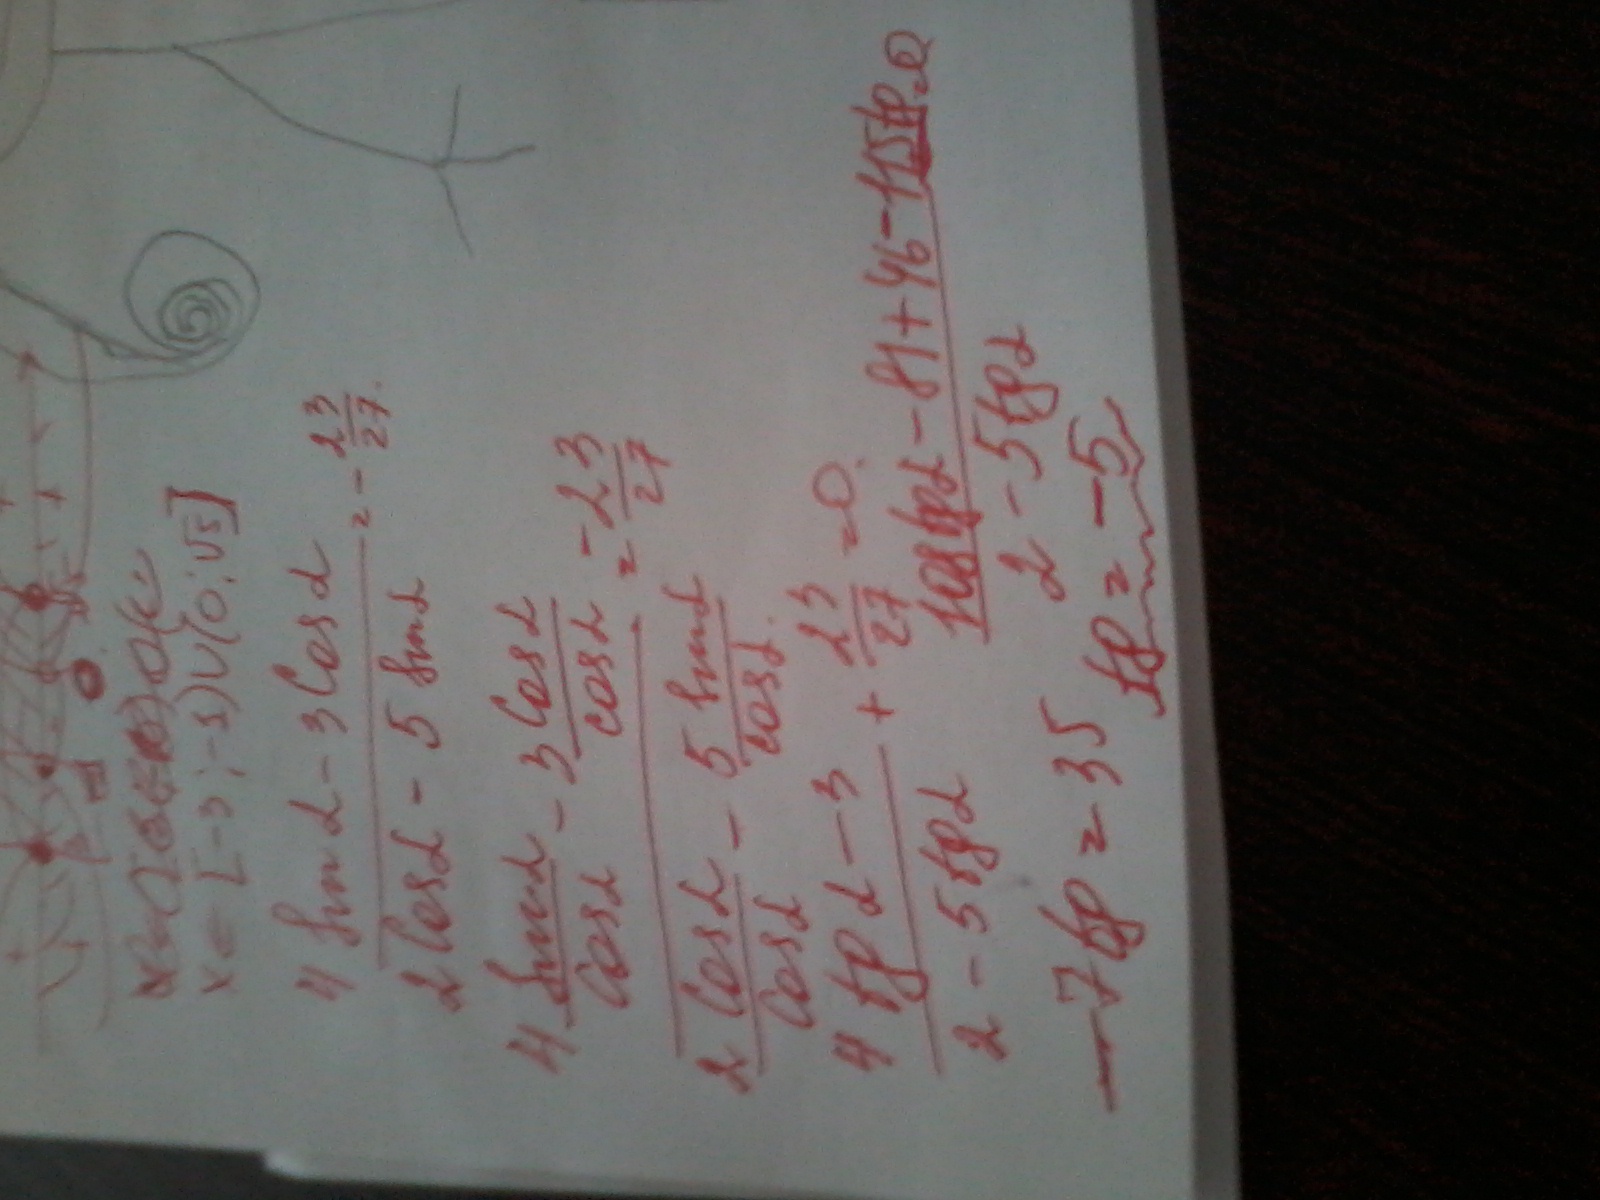 x ∈ [-3; -1) ∪ (0; √5]
4 sin α - 3 cos α / 2 cos α - 5 sin α = - 23/27.
4 sin α/cos α - 3 cos α/cos α / 2 cos α/cos α - 5 sin α/cos α = - 23/27
4 tg α - 3 / 2 - 5 tg α + 23/27 = 0.
108 tg α - 81 + 46 - 115 tg = 0 / 2 - 5 tg α
-7 tg = 35 tg = -5